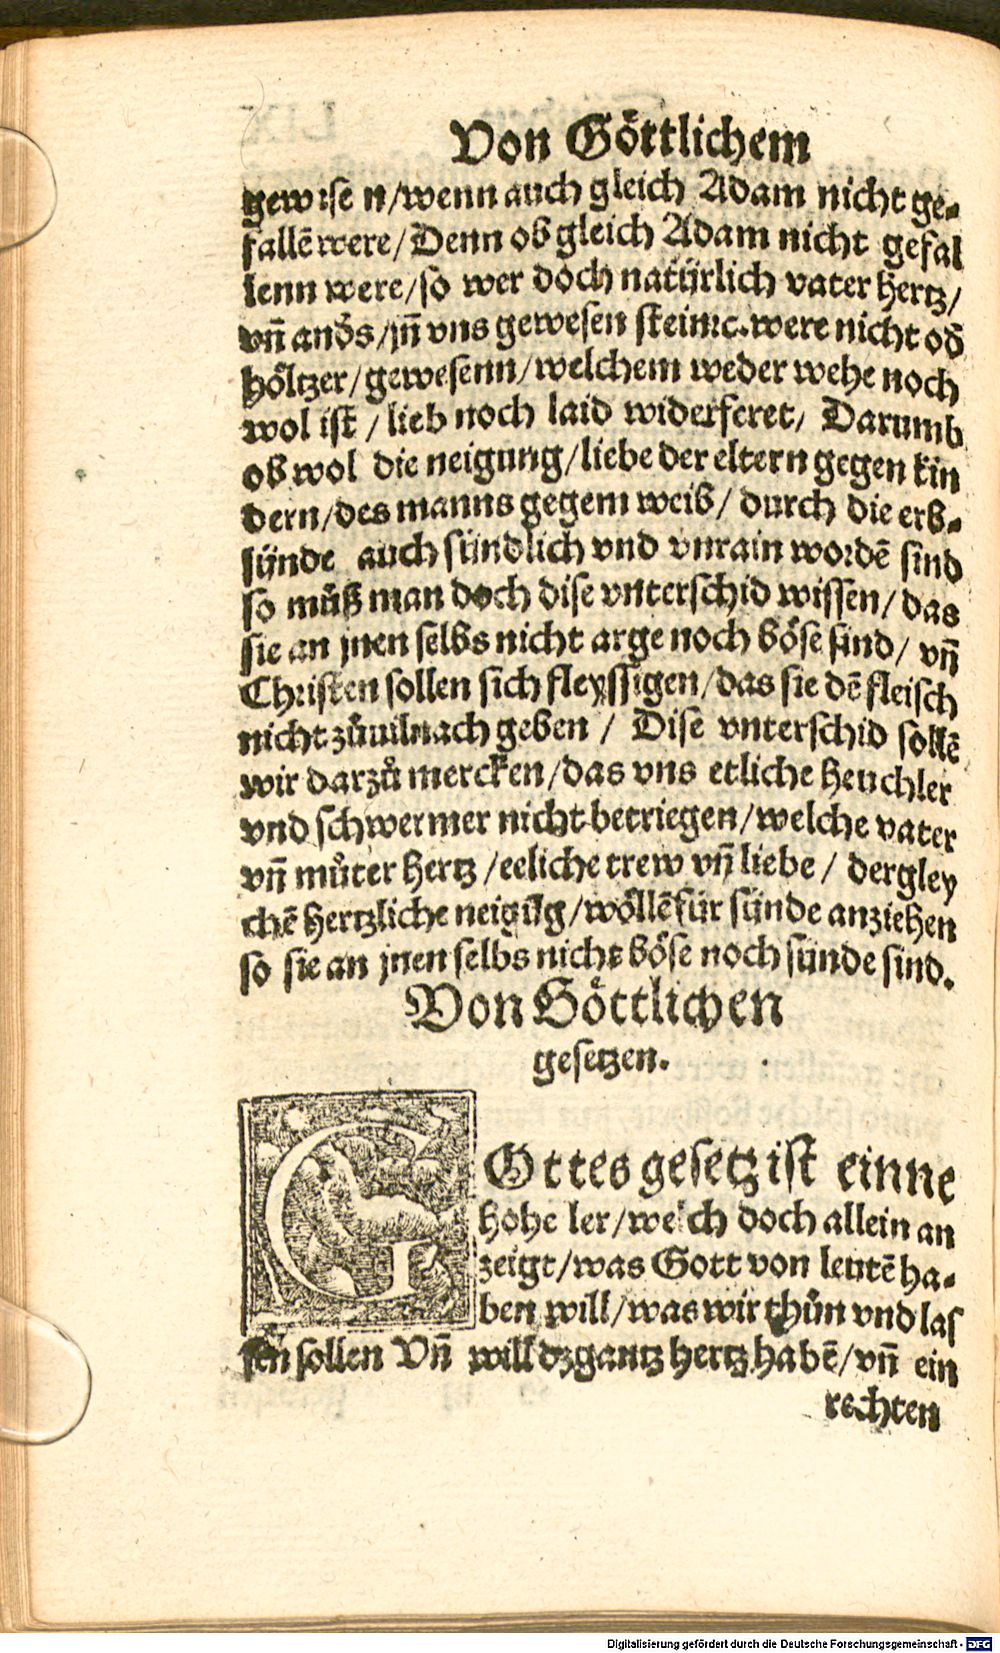 Von Göttlichem
gewise n/wenn auch gleich Adam nicht ge-
fallē were/Denn ob gleich Adam nicht gefal
lenn were/so wer doch natürlich vater hertz/
vñ anðs/jñ vns gewesen stein⁊c. were nicht oð
höltzer/gewesenn/welchem weder wehe noch
wol ist / lieb noch laid widerferet/ Darumb
ob wol die neigung/liebe der eltern gegen kin
dern/des manns gegem weib/ durch die erb-
sünde auch sündlich vnd vnrain wordē sind
so müß man doch dise vnterschid wissen/das
sie an jnen selbs nicht arge noch böse sind/ vñ
Christen sollen sich fleyssigen/das sie dē fleisch
nicht zůuil nach geben / Dise vnterschid sollē
wir darzů mercken/das vns etliche heuchler
vnd schwermer nicht betriegen/welche vater
vñ můter hertz /eeliche trew vñ liebe/ dergley
chē hertzliche neigūg/wöllē für sünde anziehen
so sie an jnen selbs nicht böse noch sünde sind.
Von Göttlichen
gesetzen.
GOttes gesetz ist einne
hohe ler/welch doch allein an
zeigt/was Gott von leutē ha-
ben will/was wir thůn vnd las
sen sollen Vñ will dz gantz hertz habē/vñ ein
rechten
Digitalisierung gefördert durch die Deutsche Forschungsgemeinschaft - DFG